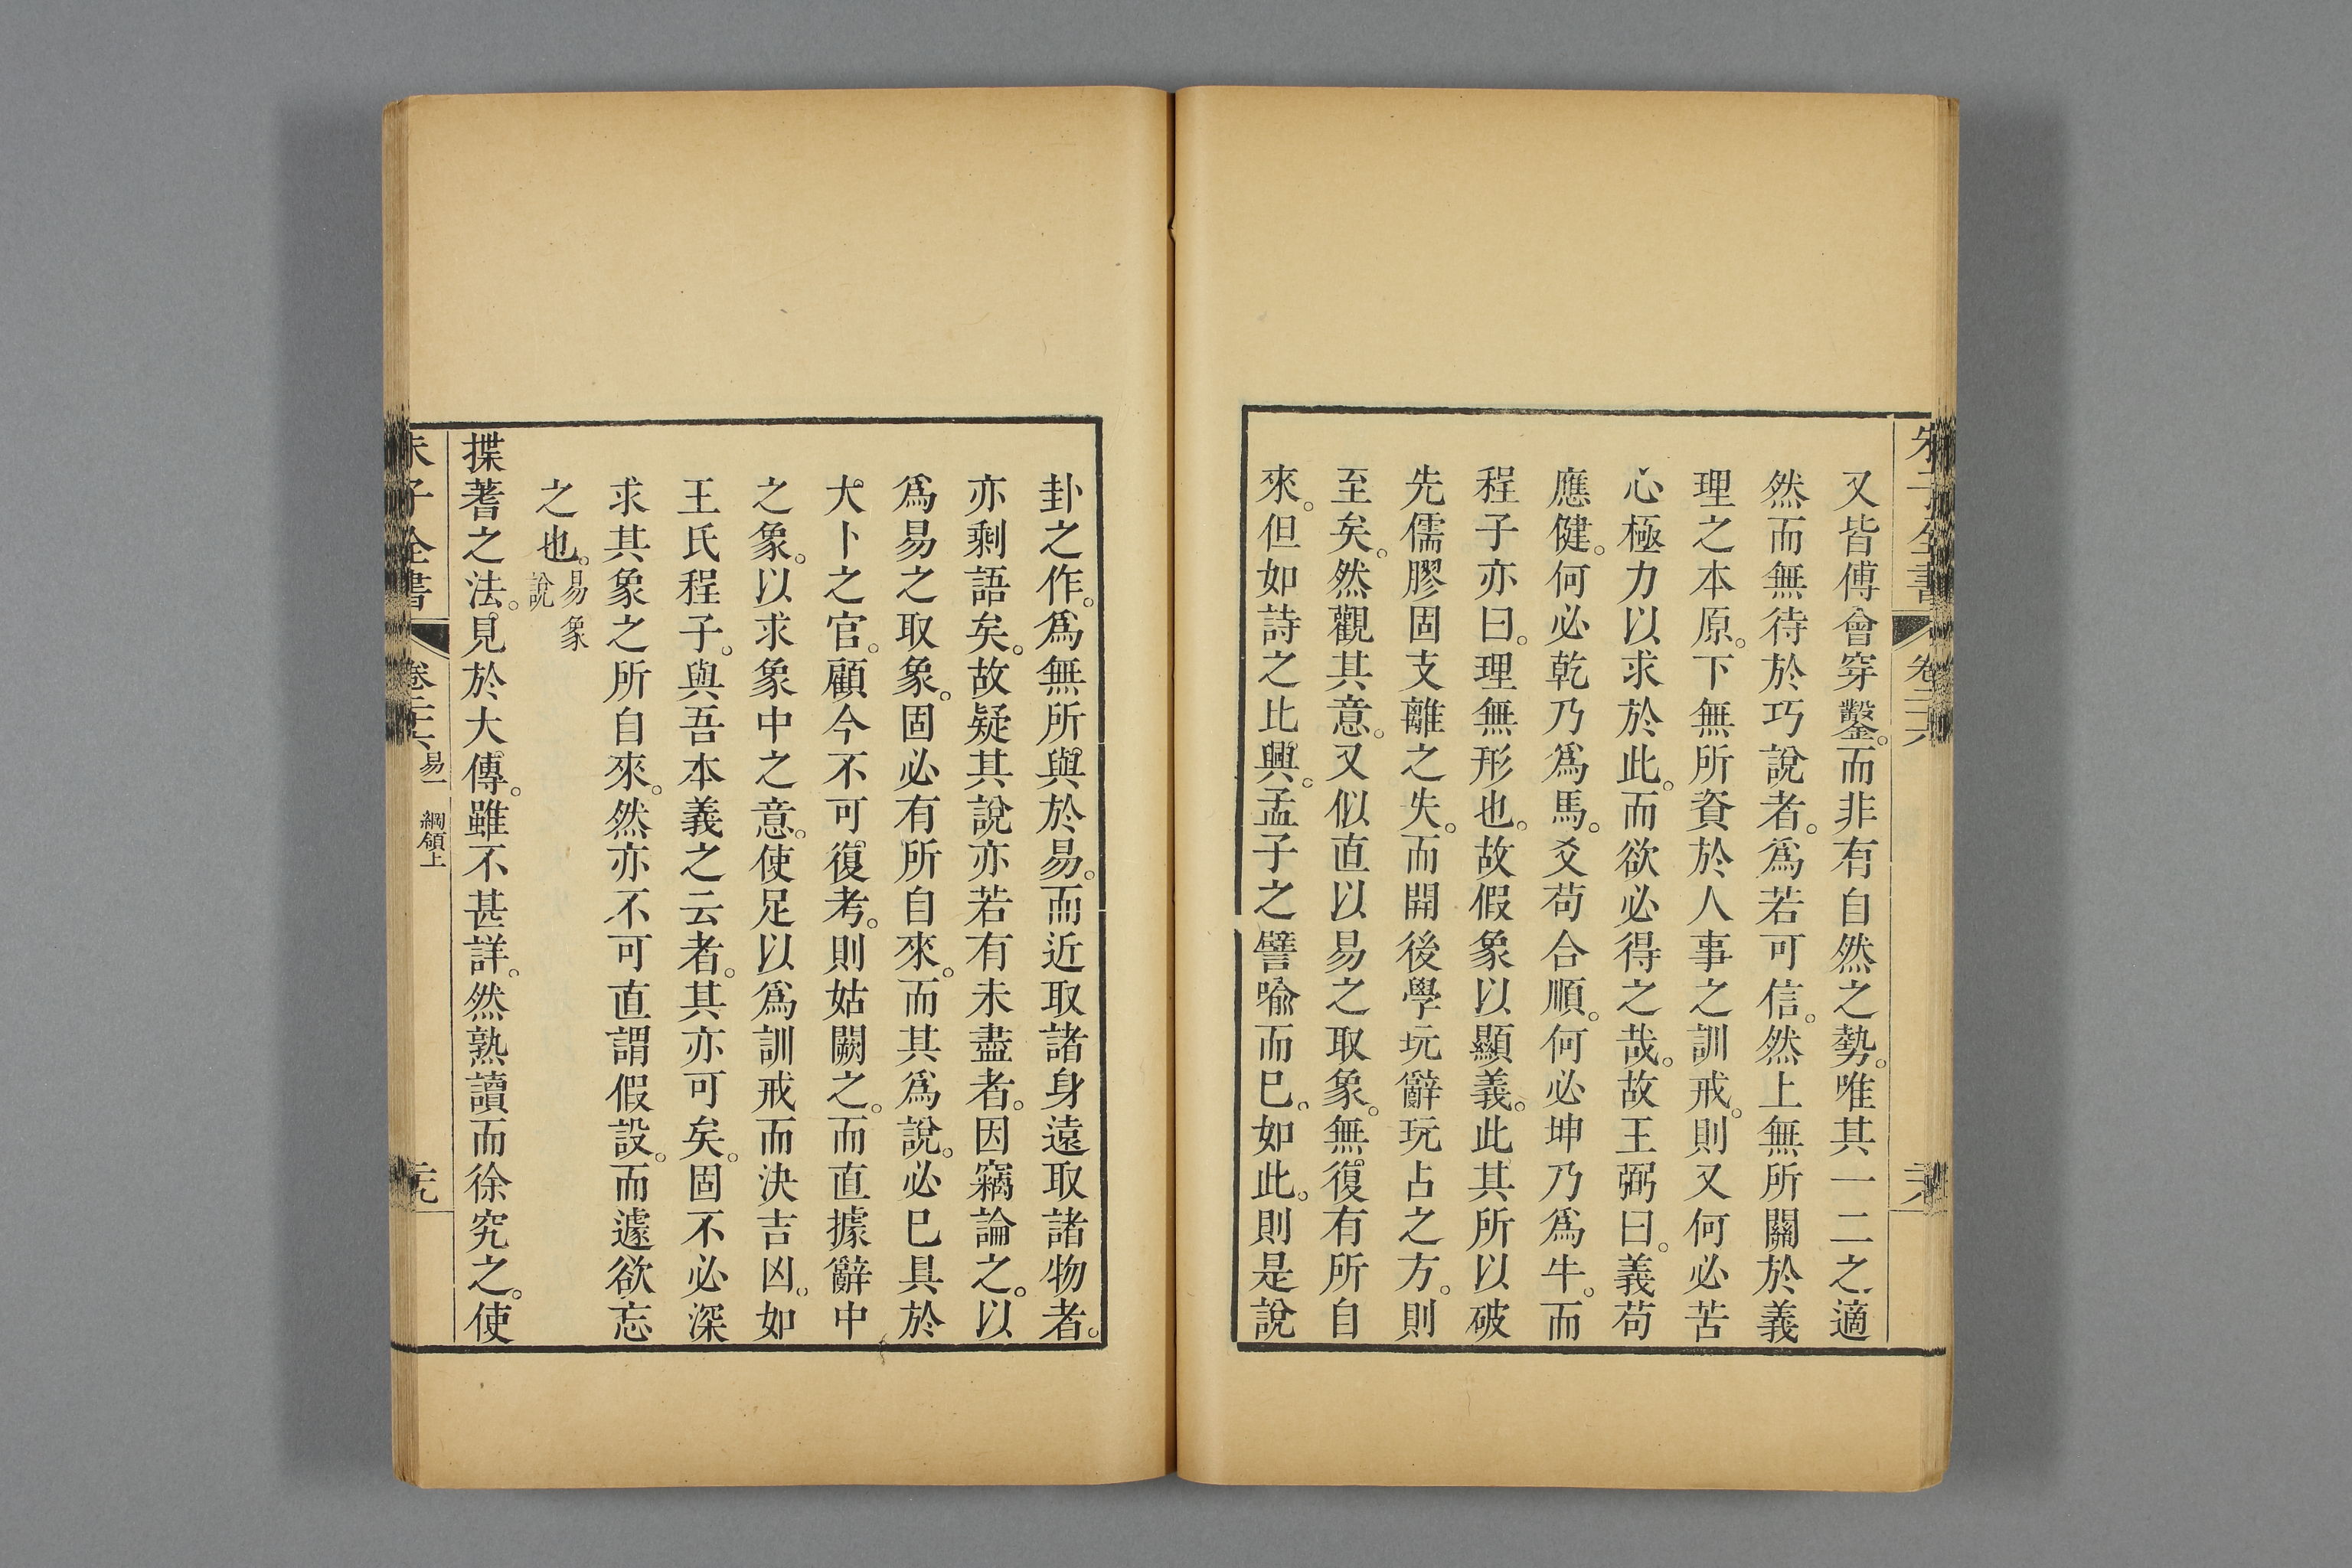 又皆傅會穿鑿。而非有自然之勢。唯其一二之適
然而無待於巧說者。爲若可信。然上無所關於義
理之本原。下無所資於人事之訓戒。則又何必苦
心極力以求於此。而欲必得之哉。故王弼曰。義苟
應健。何必乾乃爲馬。爻苟合順。何必坤乃爲牛。而
程子亦曰。理無形也。故假象以顯義。此其所以破
先儒膠固支離之失。而開後學玩辭玩占之方。則
至矣。然觀其意。又似直以易之取象。無復有所自
來。但如詩之比興。孟子之譬喻而已。如此。則是說
卦之作。爲無所與於易。而近取諸身遠取諸物者。
亦剩語矣。故疑其說亦若有未盡者。因竊論之。以
爲易之取象。固必有所自來。而其爲說。必已具於
大卜之官。顧今不可復考。則姑闕之。而直據辭中
之象。以求象中之意。使足以爲訓戒而決吉凶。如
王氏程子。與吾本義之云者。其亦可矣。固不必深
求其象之所自來。然亦不可直謂假設。而遽欲忘
之也。易象
說
揲蓍之法。見於大傳。雖不甚詳。然熟讀而徐究之。使
朱子全書
卷二十六 易一 綱領上